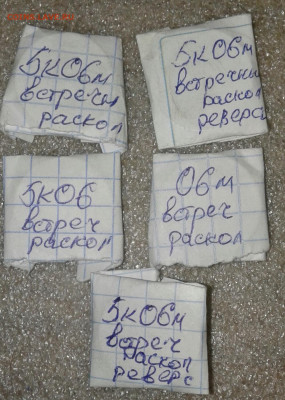 5к06м
встречн
раскол
5к06м
встречн
раскол
реверс
5к06
встреч
раскол
06м
встреч
раскол
5к06м
встреч
раскол
реверс